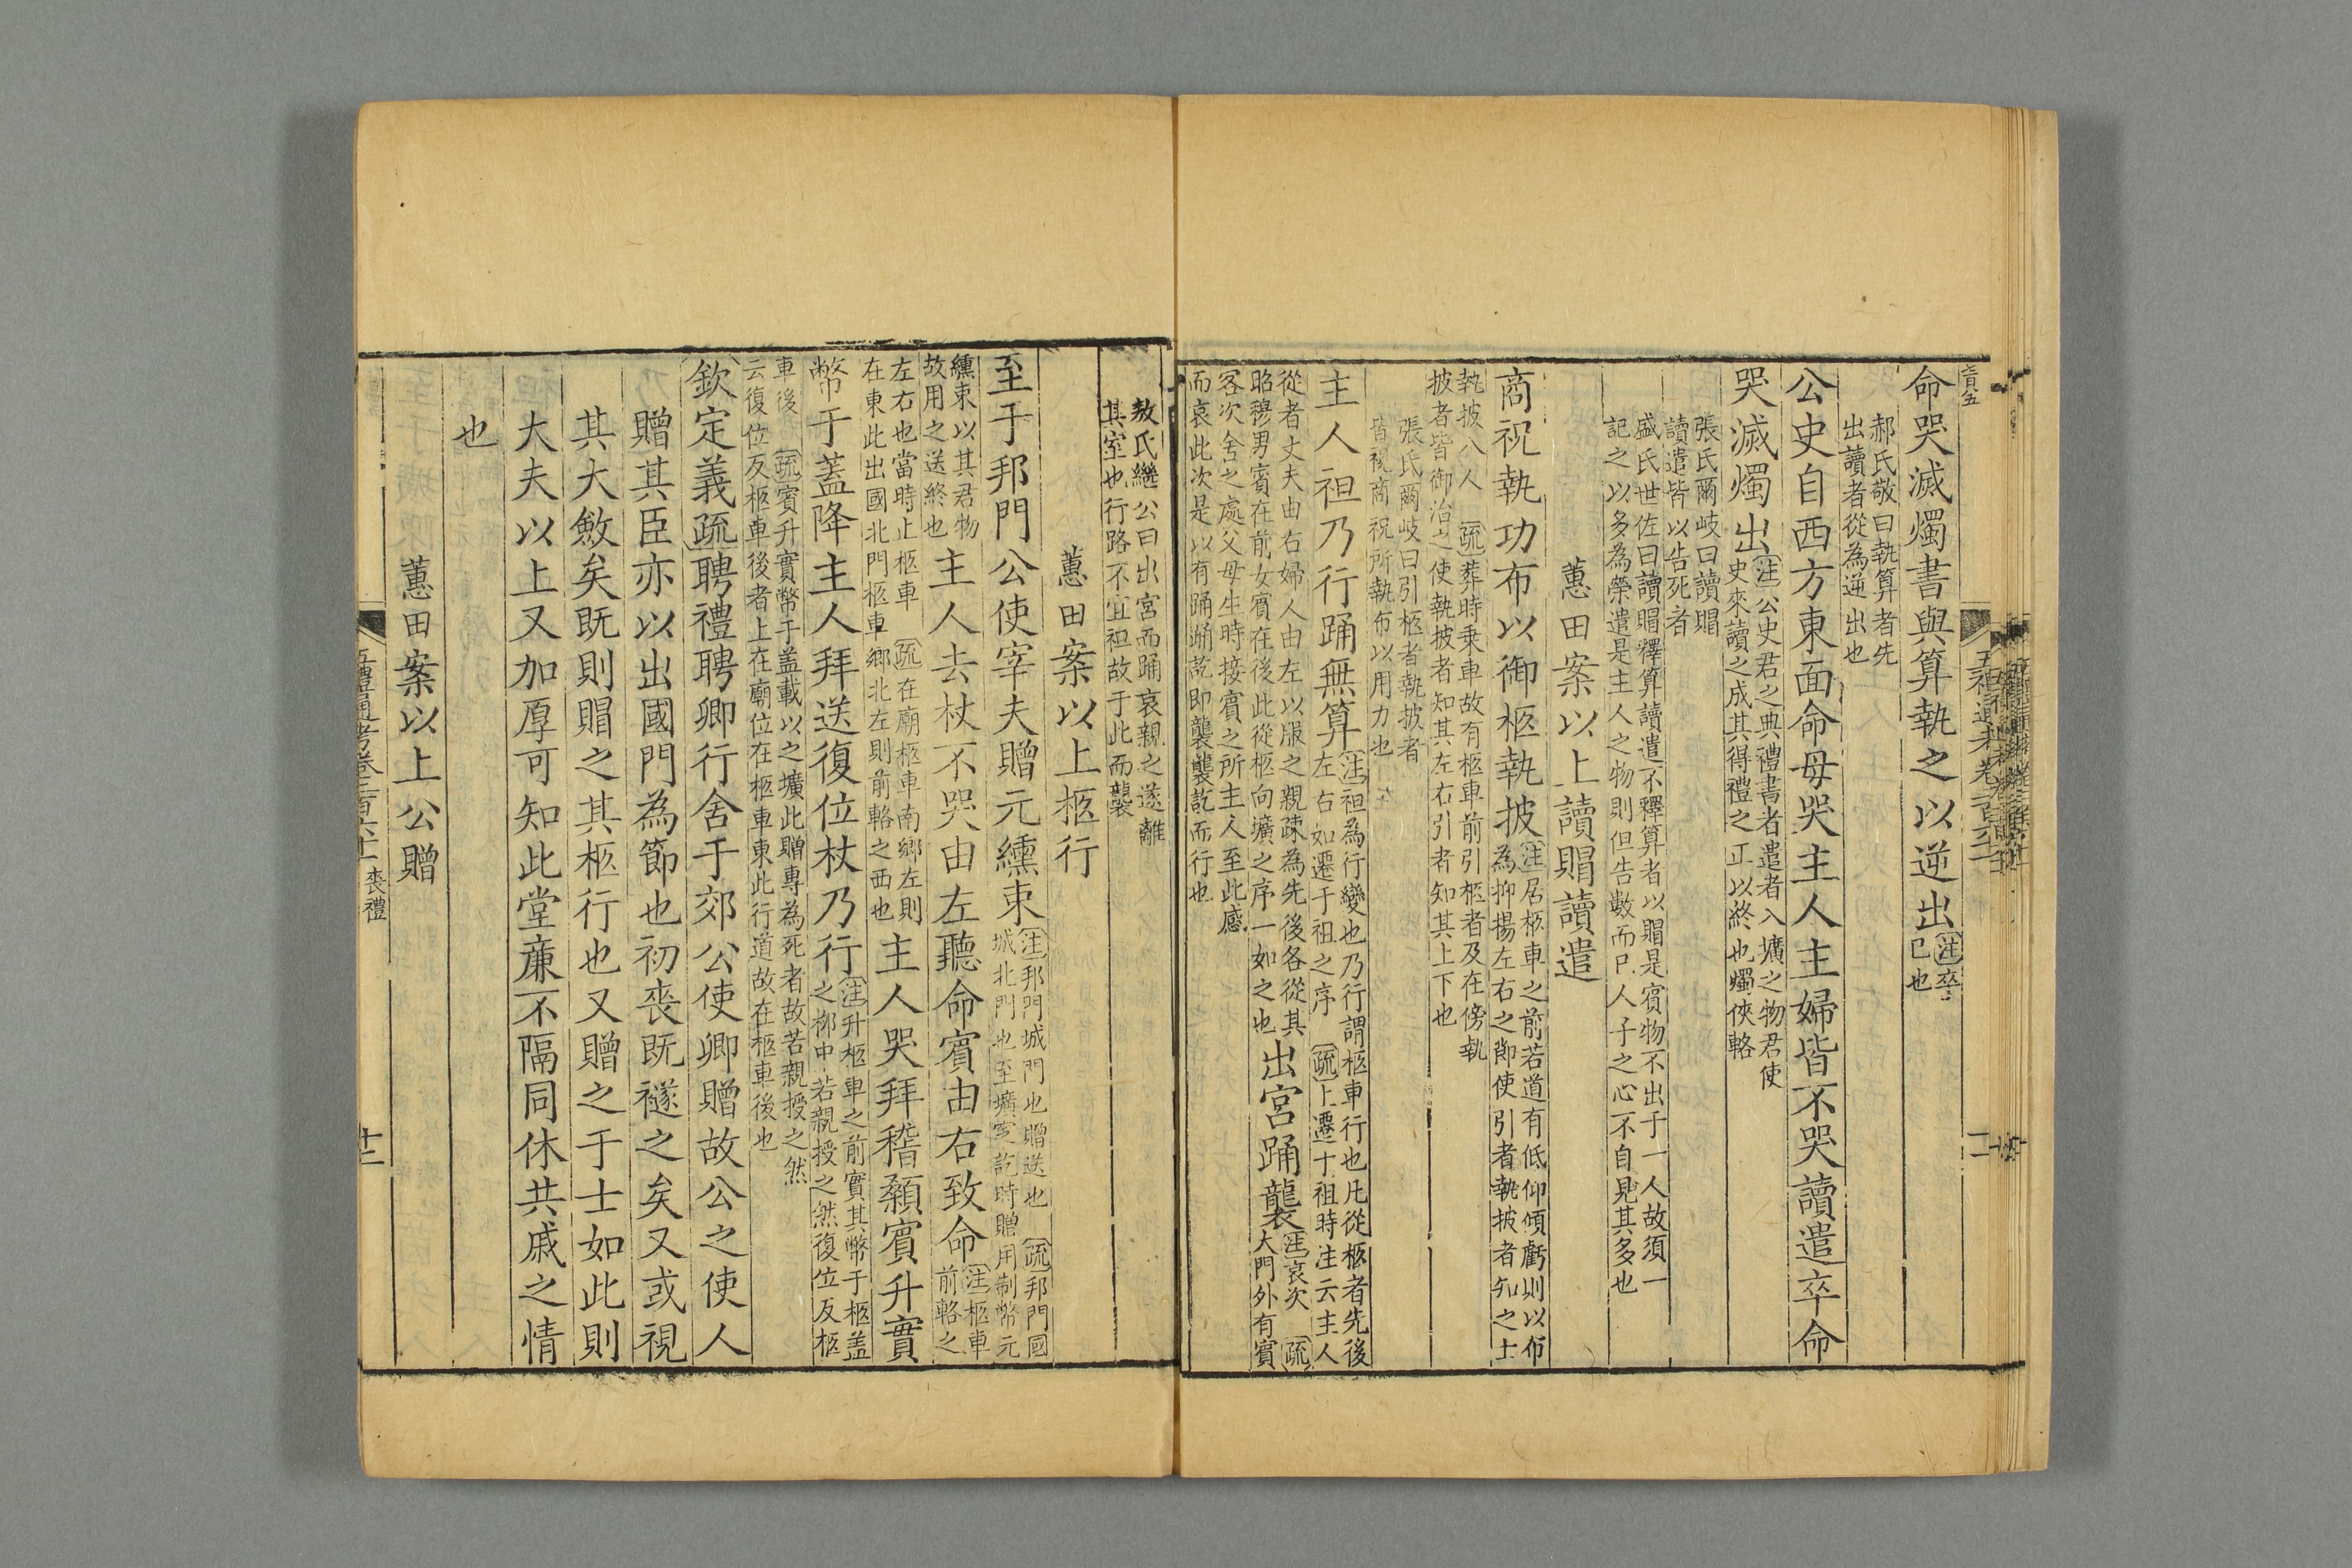 命哭滅燭書與算執之以逆出注卒
已也
郝氏敬曰執算者先
出讀者從為逆出也
公史自西方東面命毋哭主人主婦皆不哭讀遣卒命
哭滅燭出注公史君之典禮書者遣者入壙之物君使
史來讀之成其得禮之正以終也燭俠輅
張氏爾岐曰讀賵
讀遣皆以告死者
盛氏世佐曰讀賵釋算讀遣不釋算者以賵是賓物不出于一人故須一
記之以多為榮遣是主人之物則但告數而已人子之心不自見其多也
蕙田案以上讀賵讀遣
商祝執功布以御柩執披注居柩車之前若道有低仰傾虧則以布
為抑揚左右之節使引者執披者知之士
執披八人 疏葬時乗車故有柩車前引柩者及在傍執
披者皆御治之使執披者知其左右引者知其上下也
張氏爾岐曰引柩者執披者
皆視商祝所執布以用力也
主人袒乃行踊無算注袒為行變也乃行謂柩車行也凡從柩者先後
左右如遷于祖之序 疏上遷于祖時注云主人
從者丈夫由右婦人由左以服之親疎為先後各從其
昭穆男賓在前女賓在後此從柩向壙之序一如之也出宮踊襲注哀次 疏
大門外有賓
客次舍之處父母生時接賓之所主人至此感
而哀此次是以有踊踊訖即襲襲訖而行也
敖氏繼公曰出宮而踊哀親之遂離
其室也行路不宜袒故于此而襲
蕙田案以上柩行
至于邦門公使宰夫贈元纁束注邦門城門也贈送也 疏邦門國
城北門也至壙窆訖時贈用制幣元
纁束以其君物
故用之送終也主人去杖不哭由左聽命賓由右致命注柩車
前輅之
左右也當時止柩車 疏在廟柩車南鄉左則
在東此出國北門柩車鄉北左則前輅之西也主人哭拜稽顙賓升實
幣于蓋降主人拜送復位杖乃行注升柩車之前實其幣于柩盖
之栁中若親授之然復位反柩
車後 疏賓升實幣于盖載以之壙此贈專為死者故若親授之然
云復位反柩車後者上在廟位在柩車東此行道故在柩車後也
欽定義疏聘禮聘卿行舍于郊公使卿贈故公之使人
贈其臣亦以出國門為節也初喪既襚之矣又或視
其大斂矣既則賵之其柩行也又贈之于士如此則
大夫以上又加厚可知此堂廉不隔同休共戚之情
也
蕙田案以上公贈
五禮通考卷二百六十 喪禮
十二